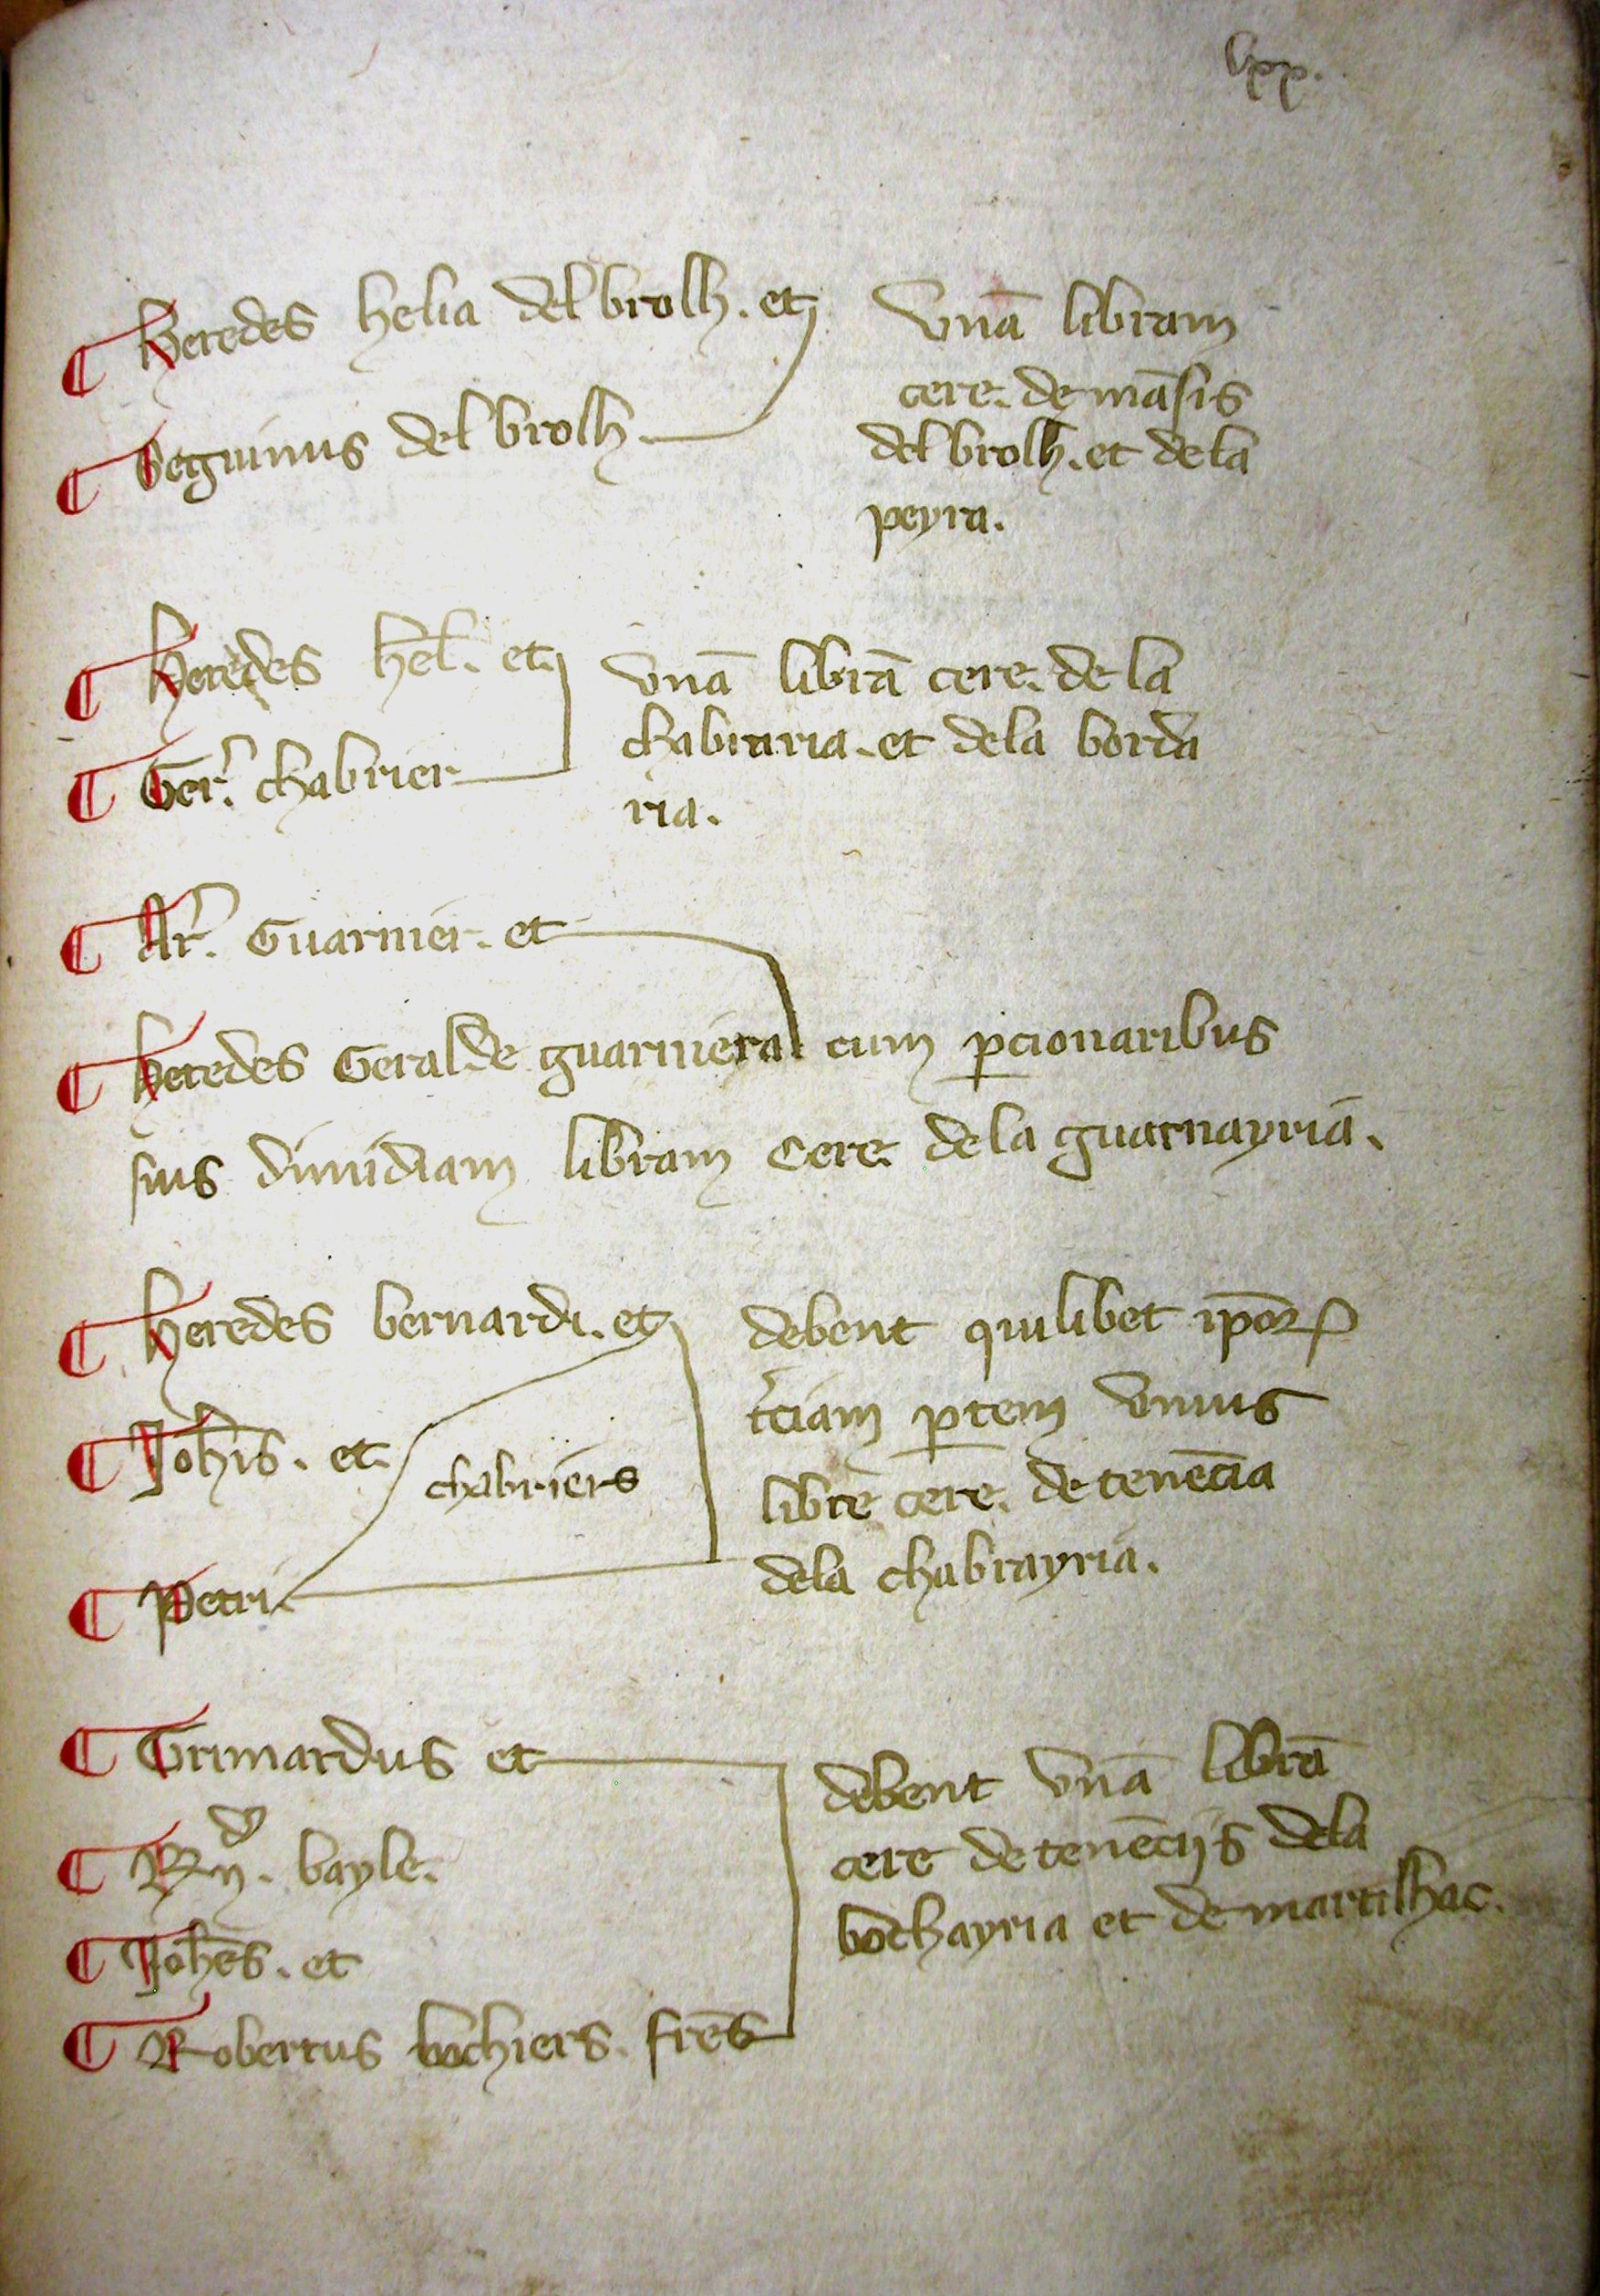 lxx.
¶ Heredes helia del brolh . et
¶ Seguinus del brolh .
Vnā libram
cere . de māsis
del brolh . et de la
peyra .
¶ Heredes hel̄ . et
¶ Ger̃ . chabrier
Vnā librā cere . de la
chabraria . et de la borda
ria .
¶ Ar̃ . Guarnier . et
¶ heredes Geralde guarniera cum ꝑcionaribus
suis dimidiam libram cere de la guarnayria .
¶ Heredes bernardi . et
¶ Joh̄is . et
chabriers
¶ Petri
debent quilibet ip̄oꝝ
t̃ciam ꝑtem vnius
libre cere . de tenēcia
de la chabrayria .
¶ Grimardus et
¶ Rᵈ . bayle .
¶ Joh̄es . et
¶ Robertus bochiers . fr̄es
debent vnā librā
cere de tenēcijs de la
bochayria et de martilhac .